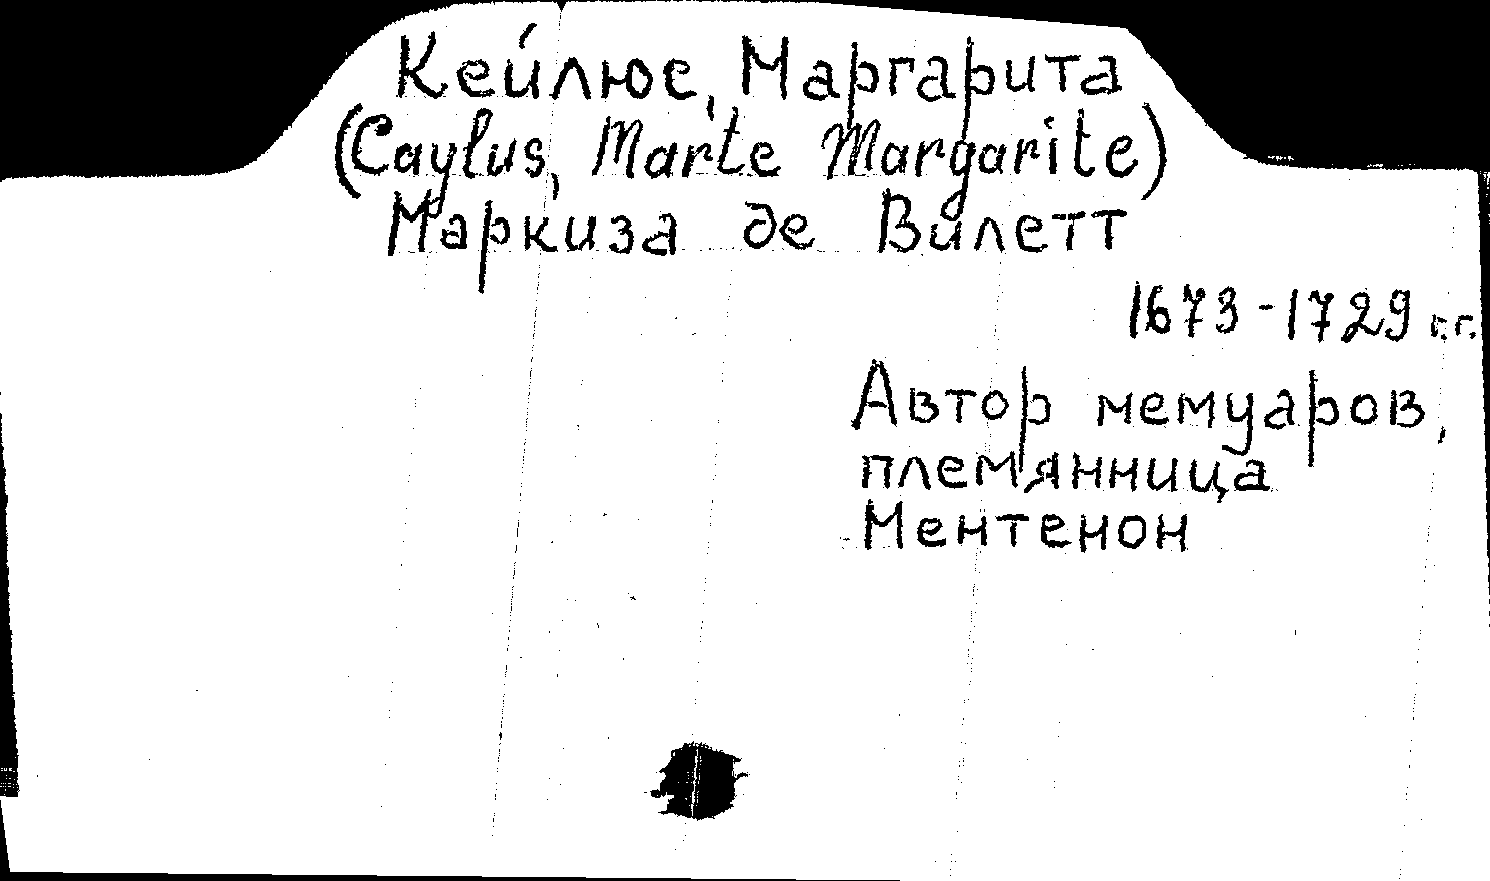 Кейлюс, Маргарита
(Caylus, Marte Margarite)
Маркиза де Вилетт
1673-1729 г.г.
Автор мемуаров,
племянница
Ментенон